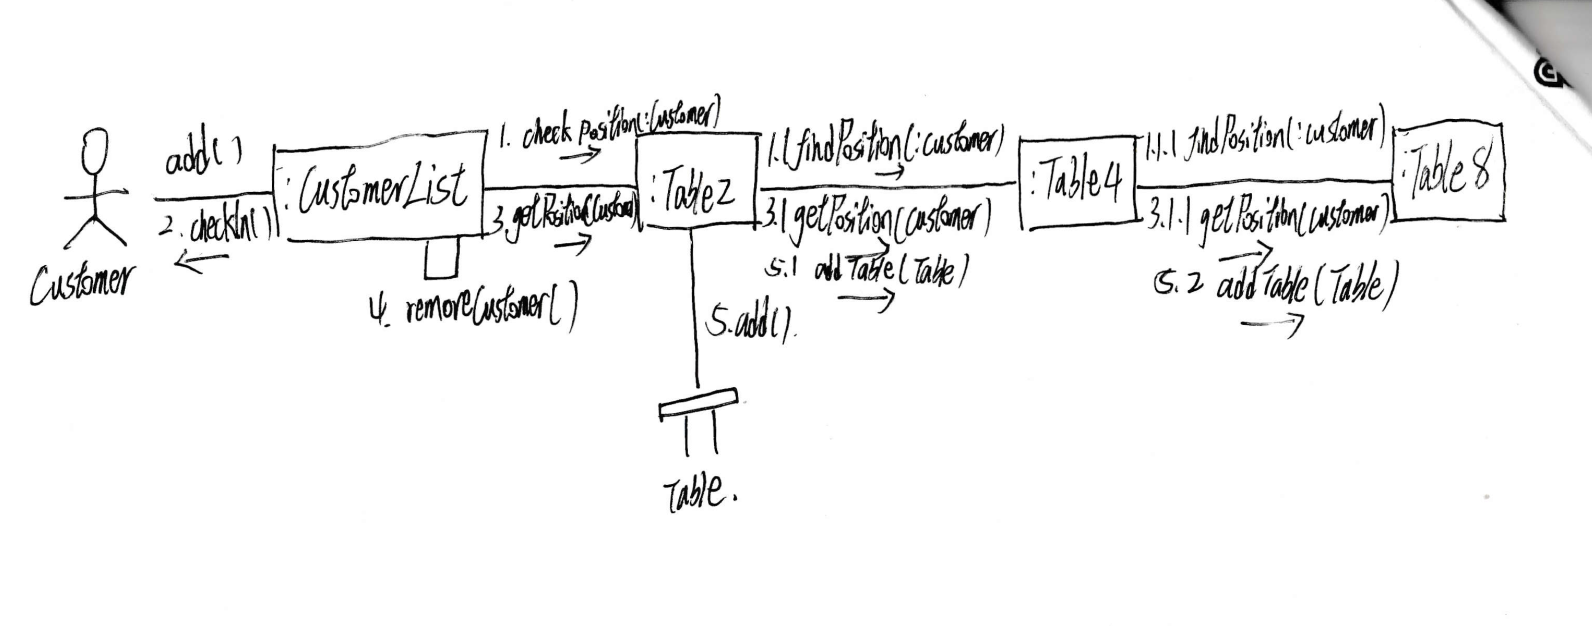 add()
2. checkIn()
Customer
:CustomerList
4. removeCustomer()
1. checkPosition(:Customer)
3. getPosition(Custom)
:Table2
5.add().
Table.
1.1 findPosition(:customer)
3.1 getPosition(customer)
5.1 addTable(Table)
:Table4
1.1.1 findPosition(:customer)
3.1.1 getPosition(customer)
5.2 addTable(Table)
:Table8